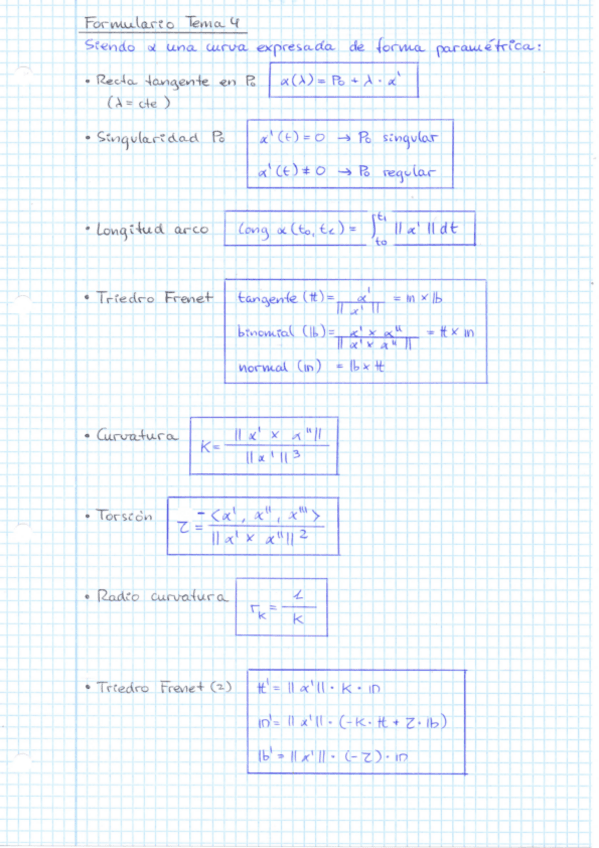 Formulario Tema 4
Siendo α una curva expresada de forma paramétrica:
• Recta tangente en P₀ α(λ) = P₀ + λ · α'
(λ = cte)
• Singularidad P₀ α'(t) = 0 → P₀ singular
α'(t) ≠ 0 → P₀ regular
• Longitud arco Long α(t₀, t₁) = ∫_{t₀}^{t₁} ||α'|| dt
• Triedro Frenet tangente (𝕥) = α' / ||α'|| = 𝕟 × 𝕓
binomial (𝕓) = α' × α'' / ||α' × α''|| = 𝕥 × 𝕟
normal (𝕟) = 𝕓 × 𝕥
• Curvatura K = ||α' × α''|| / ||α'||³
• Torsión τ = -<α', α'', α'''> / ||α' × α''||²
• Radio curvatura r_K = 1 / K
• Triedro Frenet (2) 𝕥' = ||α'|| · K · 𝕟
𝕟' = ||α'|| · (-K · 𝕥 + τ · 𝕓)
𝕓' = ||α'|| · (-τ) · 𝕟